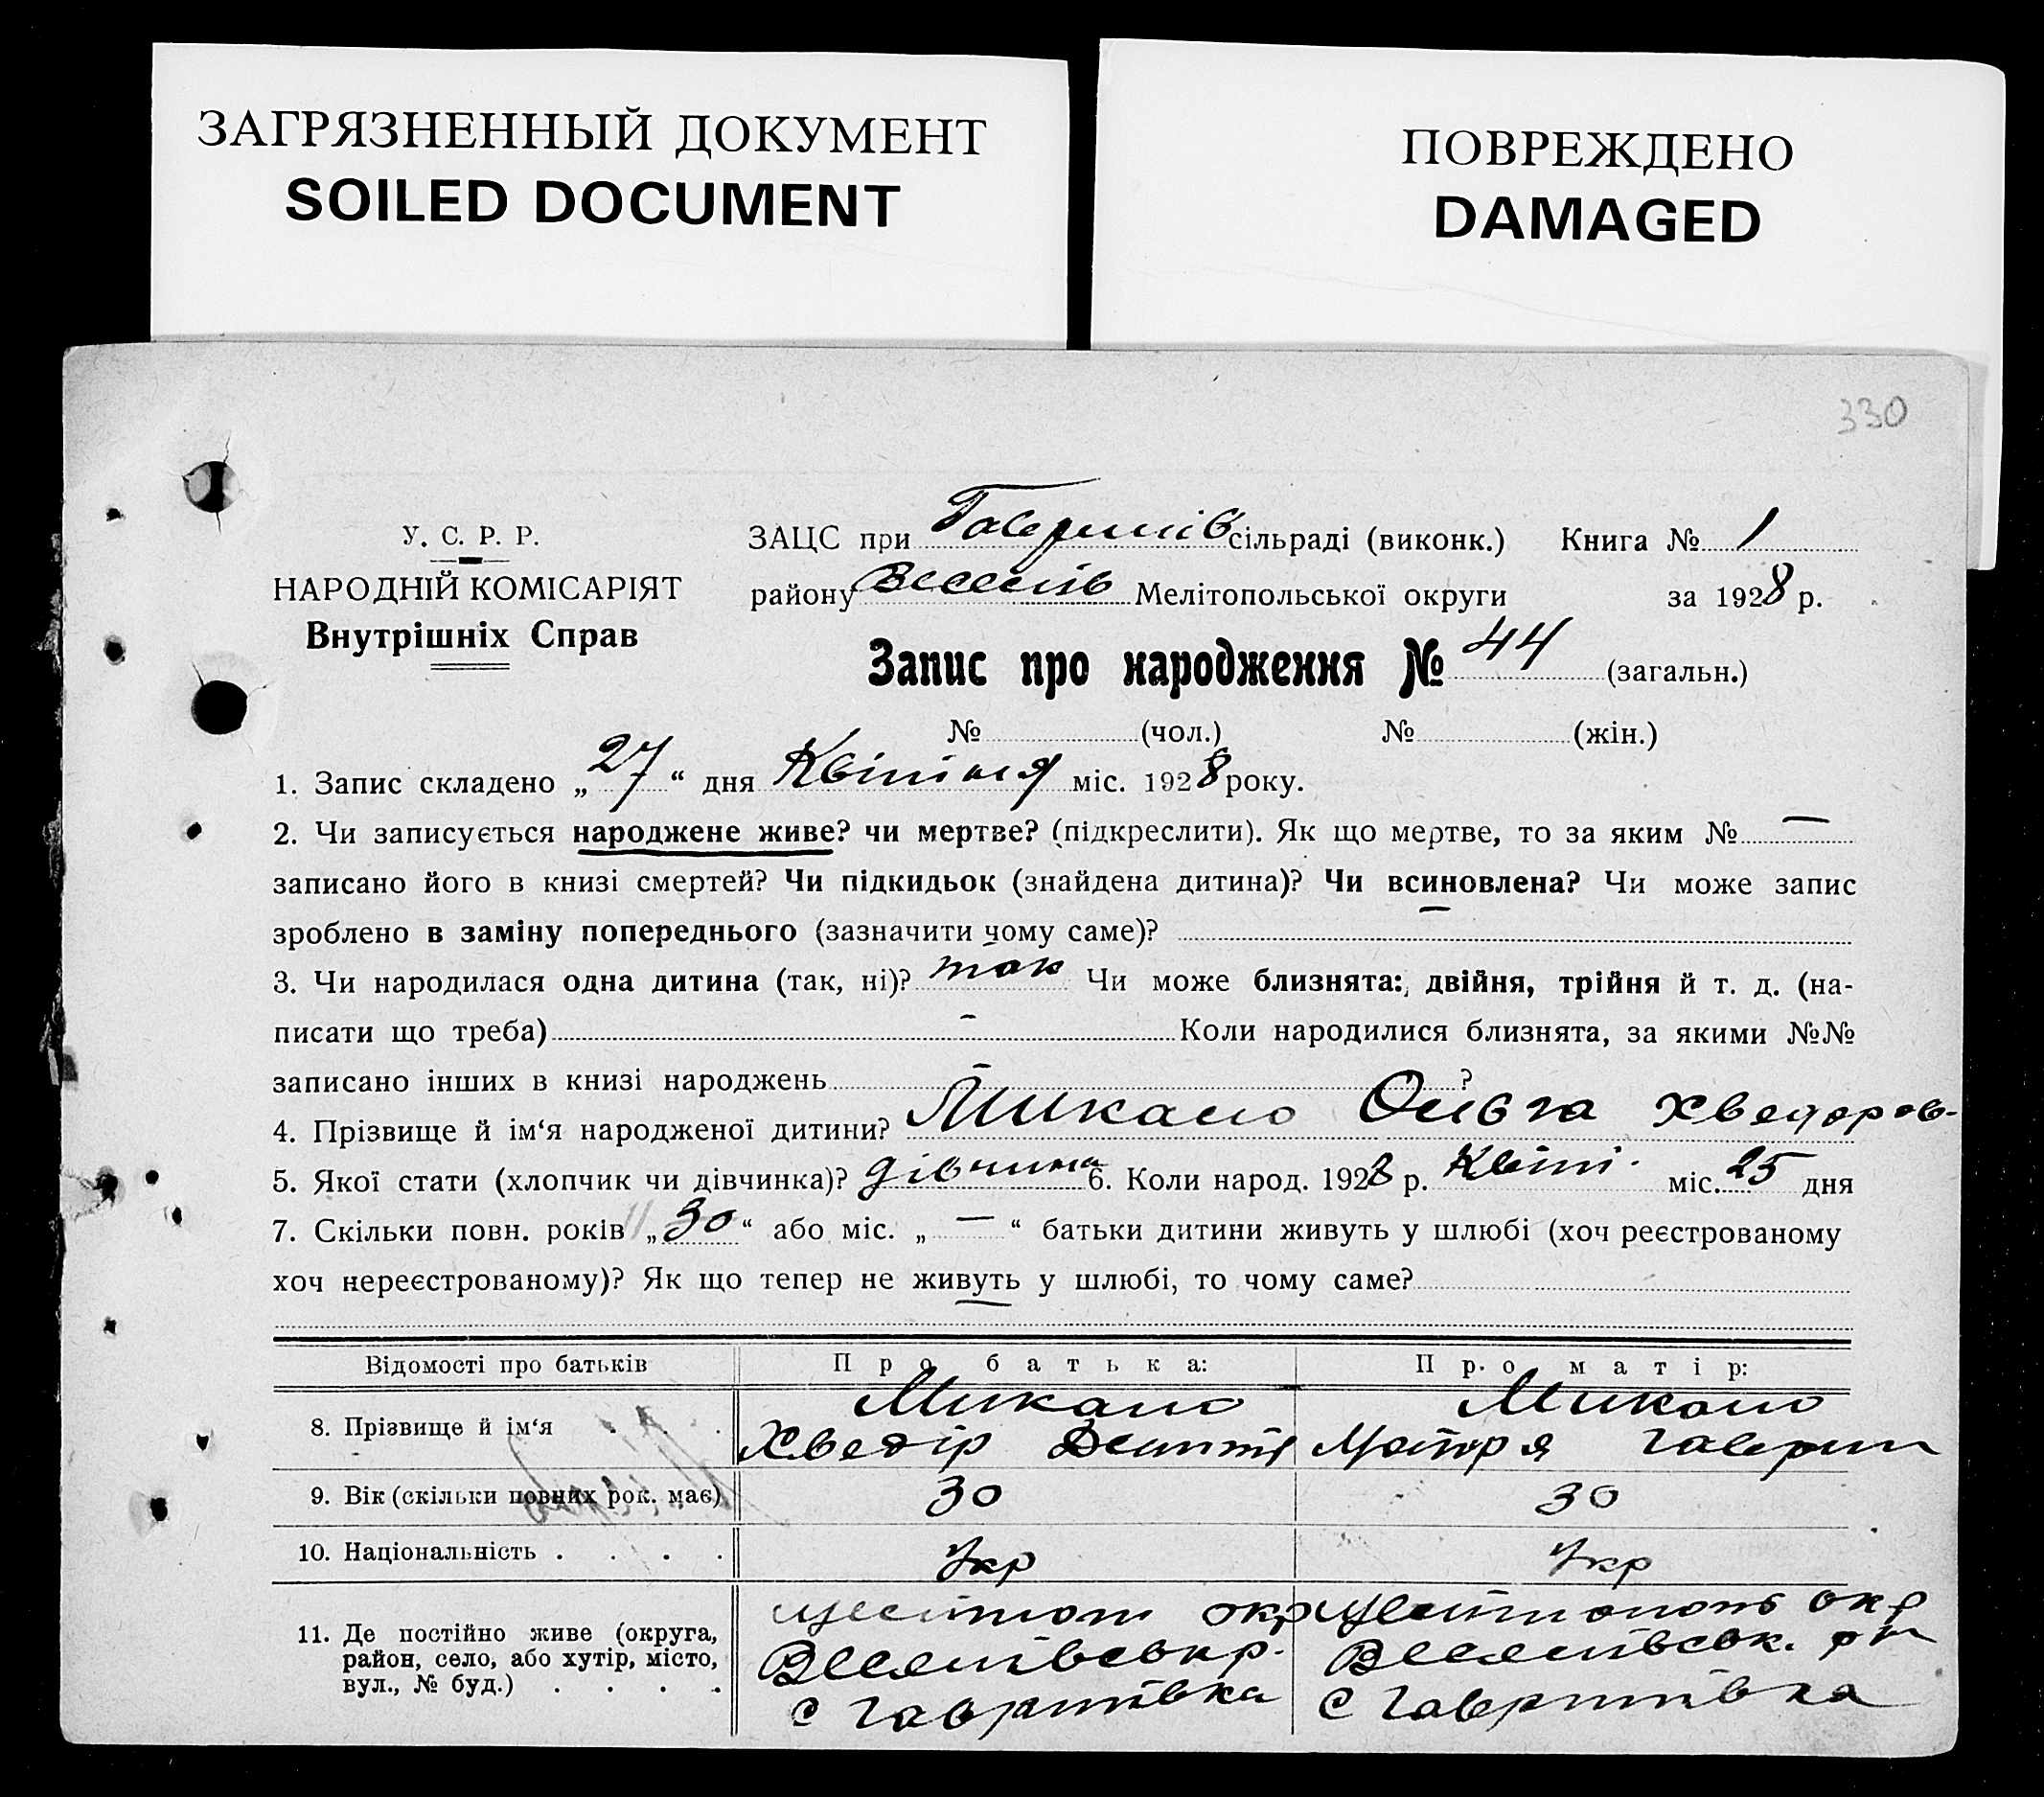 ЗАГРЯЗНЕННЫЙ ДОКУМЕНТ
SOILED DOCUMENT
ПОВРЕЖДЕНО
DAMAGED
330
У. С. Р. Р.
НАРОДНІЙ КОМІСАРІЯТ
Внутрішніх Справ
ЗАЦС при Гаврилів сільраді (виконк.) Книга № 1
району Веселів Мелітопольської округи за 1928 р.
Запис про народження № 44 (загальн.)
№ (чол.) № (жін.)
1. Запис складено „27“ дня Квітня міс. 1928 року.
2. Чи записується народжене живе? чи мертве? (підкреслити). Як що мертве, то за яким № —
записано його в книзі смертей? Чи підкидьок (знайдена дитина)? Чи всиновлена? Чи може запис
зроблено в заміну попереднього (зазначити чому саме)? —
3. Чи народилася одна дитина (так, ні)? так Чи може близнята: двійня, трійня й т. д. (на-
писати що треба) — Коли народилися близнята, за якими №№
записано інших в книзі народжень — ?
4. Прізвище й ім‘я народженої дитини? Микало Ольга Хведоров-
5. Якої стати (хлопчик чи дівчинка)? дівчина 6. Коли народ. 1928 р. Квіт. міс. 25 дня
7. Скільки повн. років „30“ або міс. „—“ батьки дитини живуть у шлюбі (хоч реєстрованому
хоч нереєстрованому)? Як що тепер не живуть у шлюбі, то чому саме?
—
Відомості про батьків Про батька: Про матір:
8. Прізвище й ім‘я . . . Микало Микало
Хведір Гаврил
9. Вік (скільки повних рок. має) 30 30
10. Національність . . . . Укр Укр
11. Де постійно живе (округа,
район, село, або хутір, місто,
вул., № буд.) . . . .
Мелітоп окр Мелітополь окр
Веселівськ р. Веселівськ. рн
с Гаврилівка с Гаврилівка